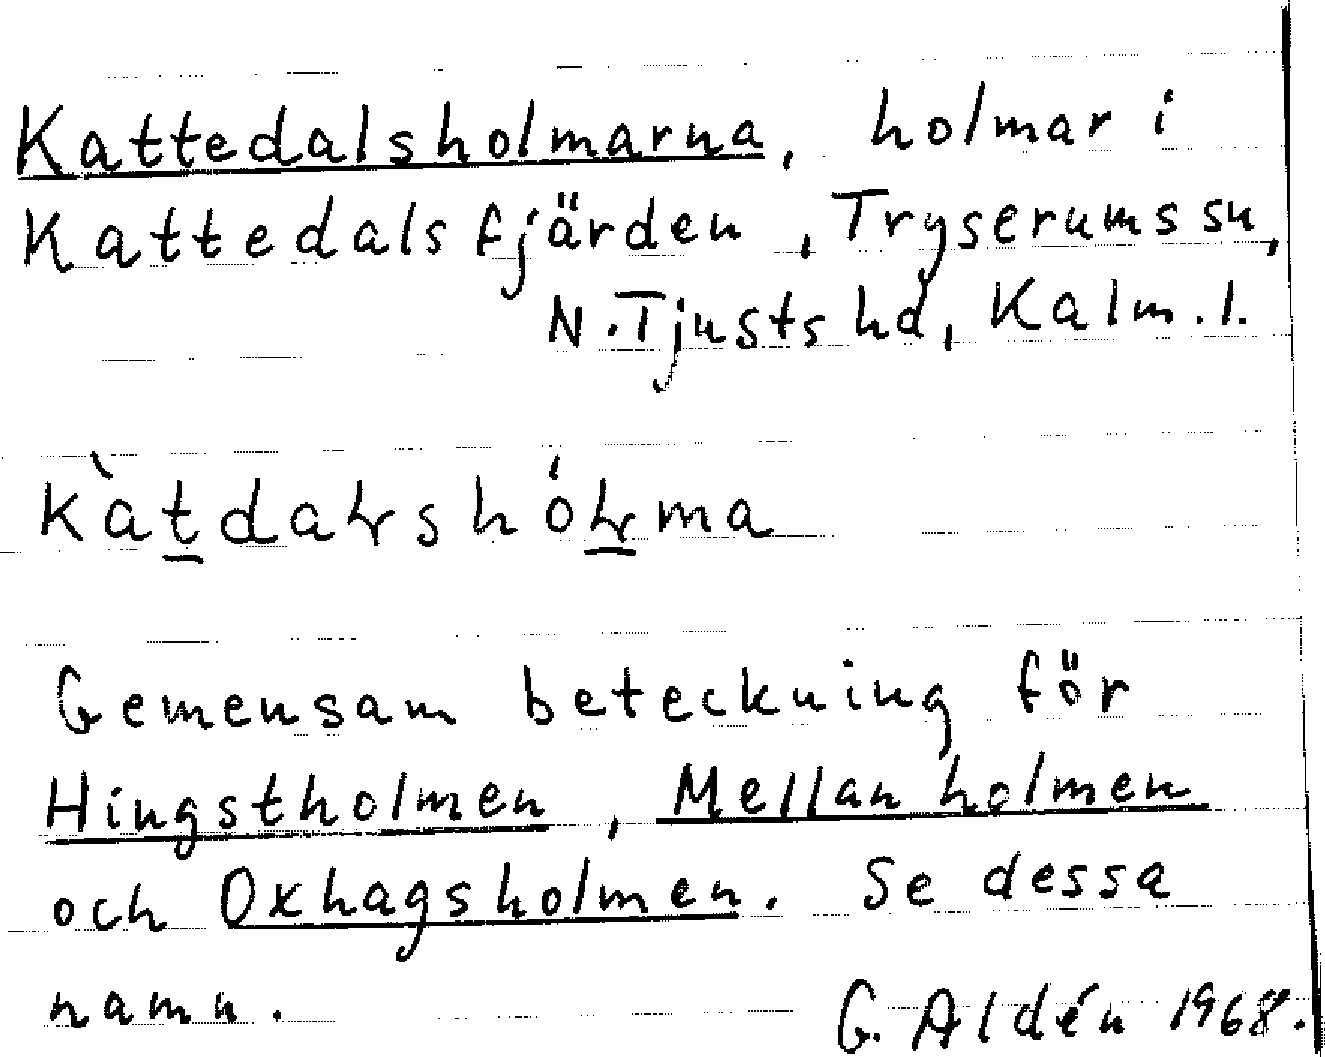 Kattedalsholmarna, holmar i
Kattedalsfjärden, Tryserums sn,
N. Tjusts hd, Kalm. l.
kàt̠daɬshóɬ̠ma
Gemensam beteckning för
Hingstholmen, Mellanholmen
och Oxhagsholmen. Se dessa
namn.
G. Aldén 1968.